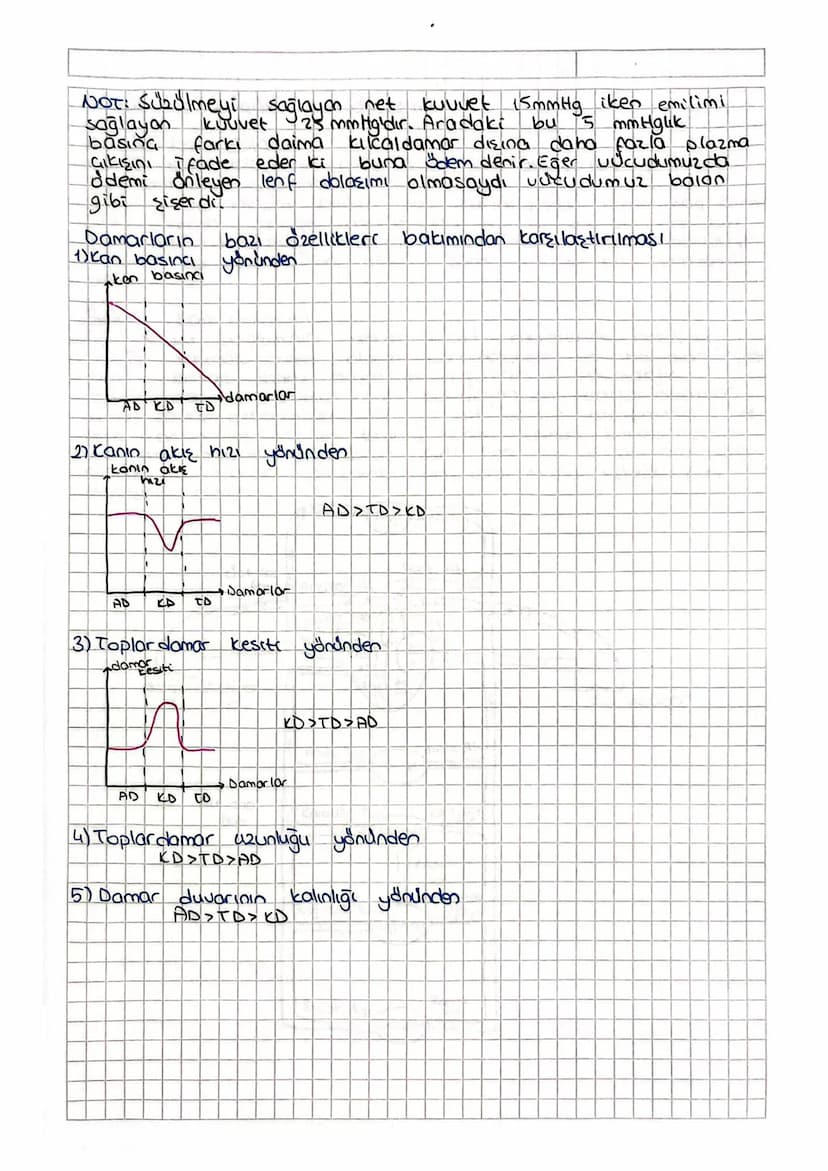 NOT: Süzülmeyi sağlayan net kuvvet 15mmHg iken emilimi
sağlayan kuvvet 25 mmHg'dır. Aradaki bu 5 mmHglık
basınç farkı daima kılcaldamar dışına daha fazla plazma
çıkışını ifade eder ki buna ödem denir. Eğer vücudumuzda
ödemi önleyen lenf dolaşımı olmasaydı vücudumuz balon
gibi şişerdi.
Damarların bazı özellikleri bakımından karşılaştırılması
1) Kan basıncı yönünden
kan basıncı
damarlar
AD KD TD
2) Kanın akış hızı yönünden
kanın akış
hızı
AD>TD>KD
Damarlar
AD KD TD
3) Toplardamar kesiti yönünden
damar
kesiti
KD>TD>AD
Damarlar
AD KD TD
4) Toplardamar uzunluğu yönünden
KD>TD>AD
5) Damar duvarının kalınlığı yönünden
AD>TD>KD